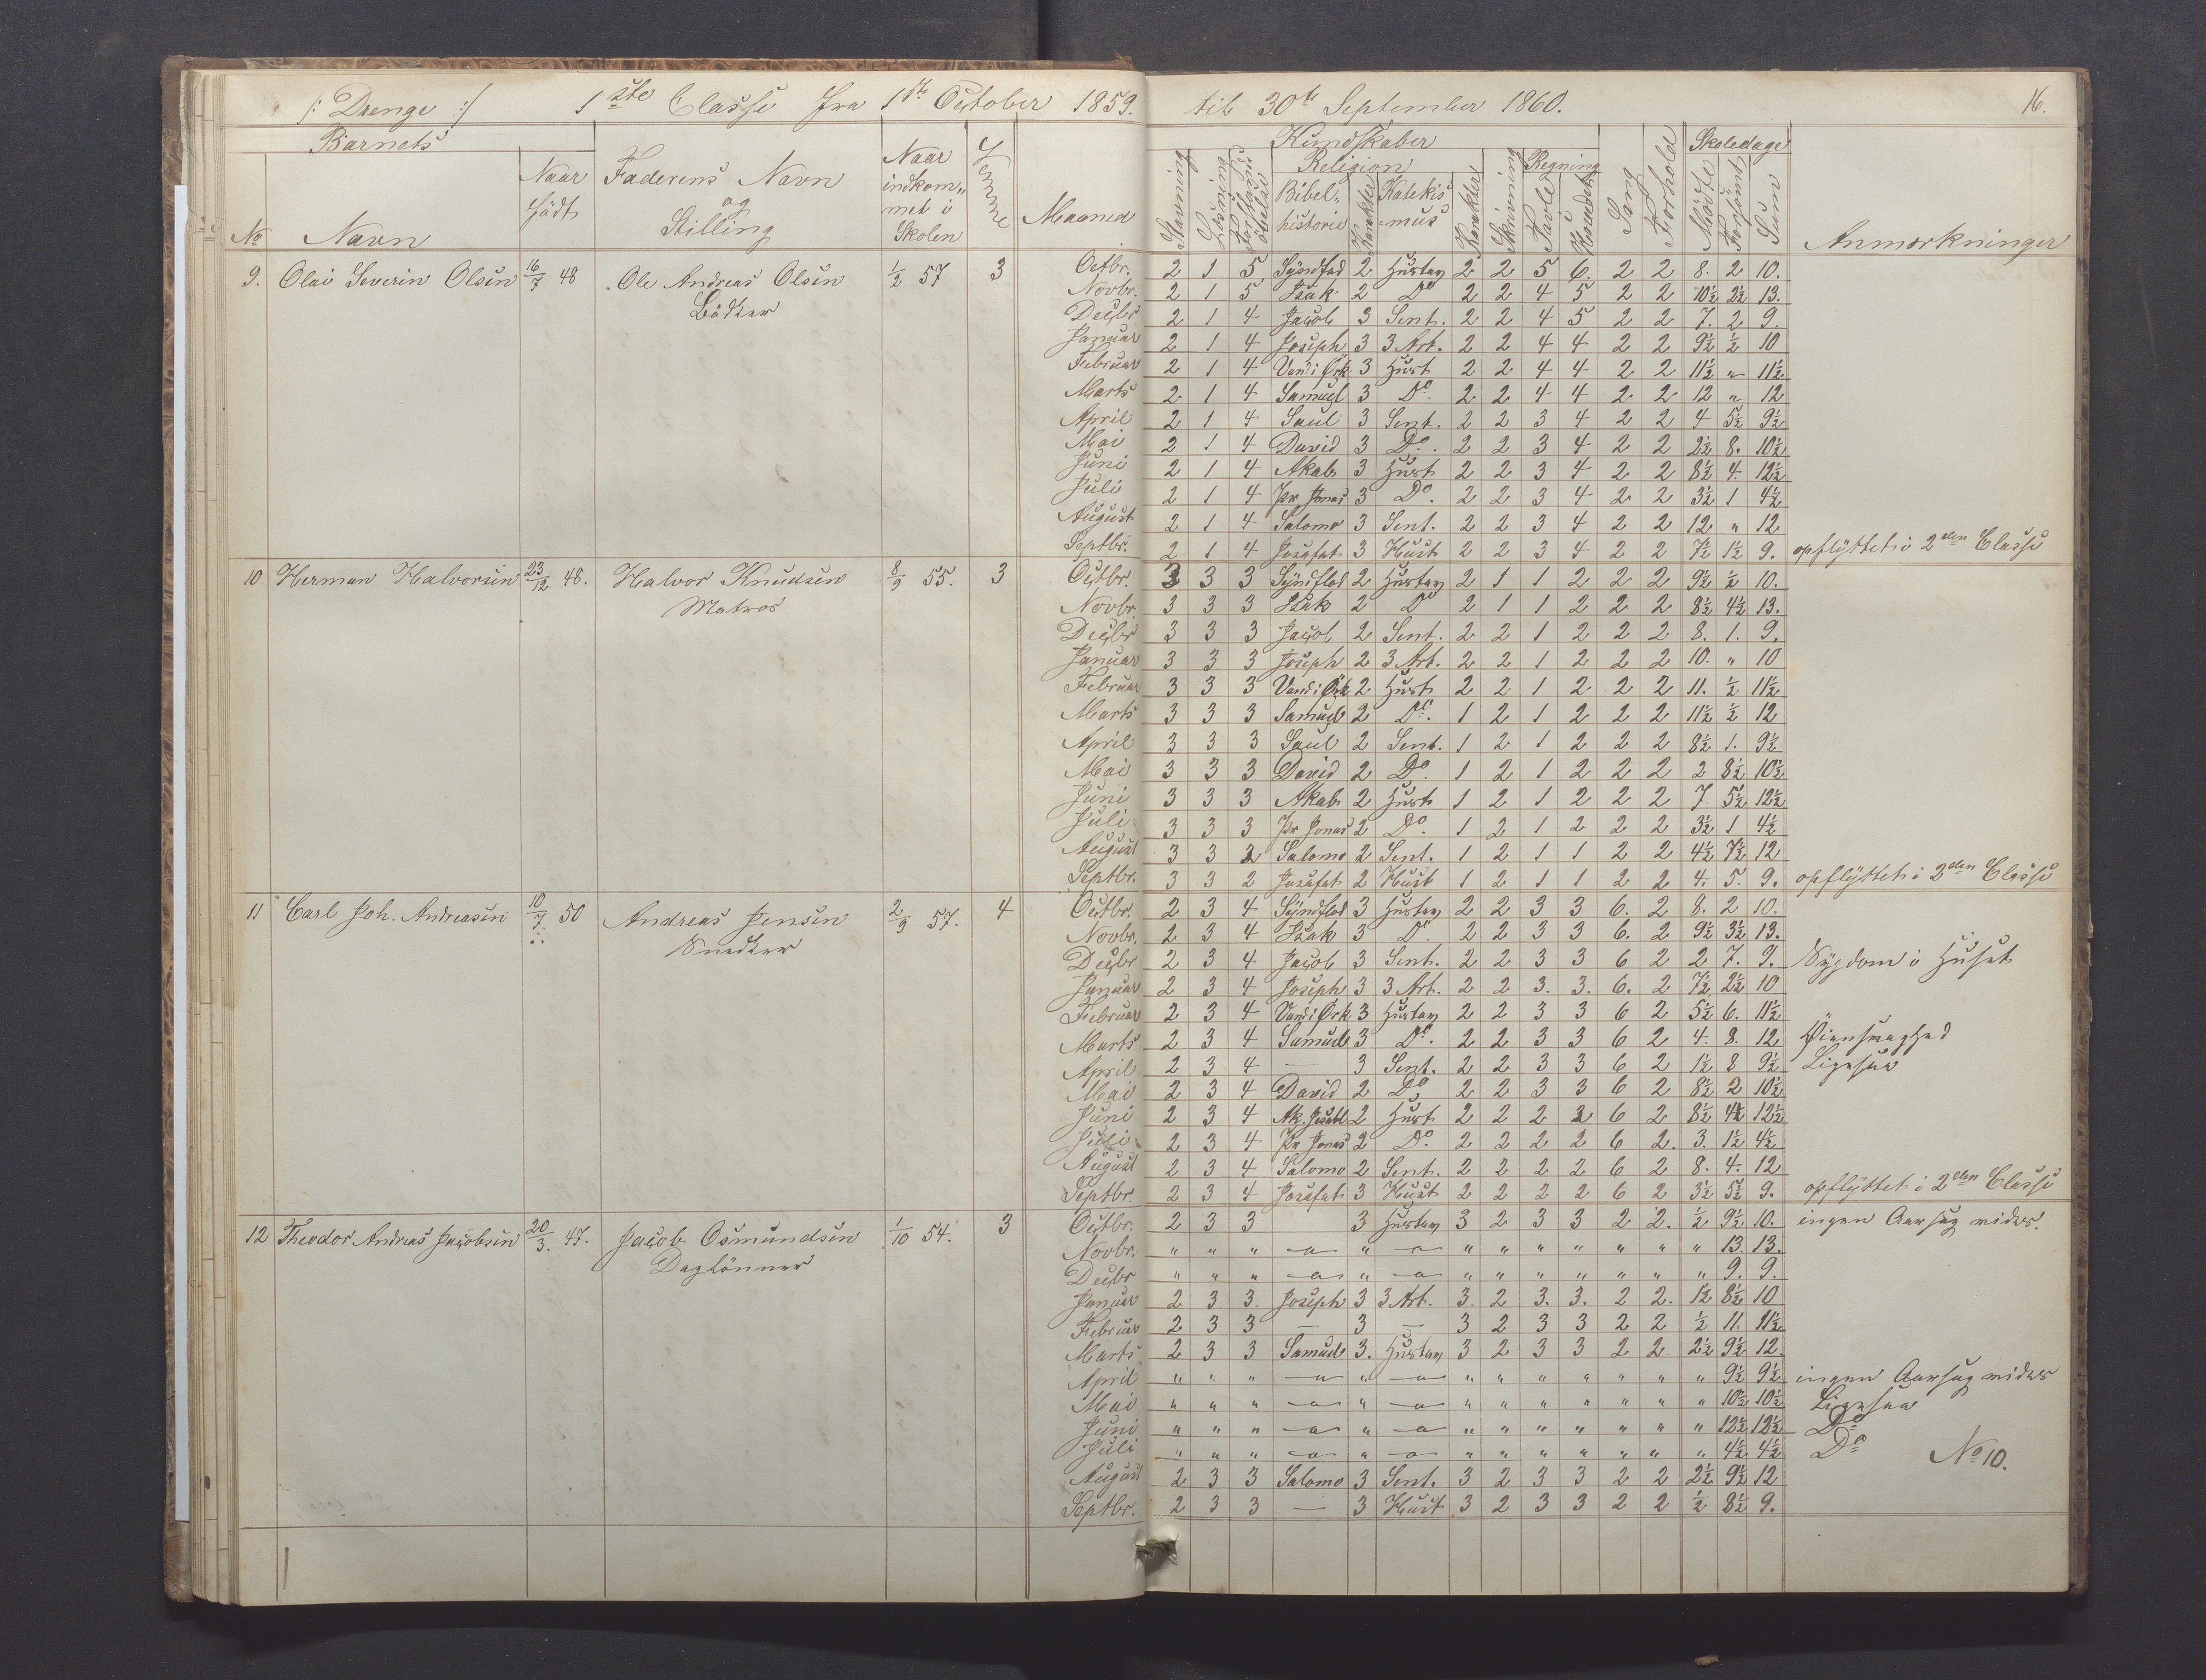 /: Drenge :/ 1ste Classe fra 1ste October 1859. til 30te September 1860. 16.
Barnets Kundskaber Skoledage
No Navn Naar født Faderens Navn og Stilling Naar indkommet i Skolen Evne Maaned Stavning Læsning Forstands øvelse Religion Bibelhistorie Karakter Katekismus Karakter Skrivning Regning Tavle Hovedet Sang Forhold Mødte Forsømt Sum Anmærkninger
9. Olai Severin Olsen 16/7 48 Ole Andreas Olsen 1/2 57 3 Octbr. 2 1 5 Syndfad 2 Hustav 2 2 5 6. 2 2 8. 2 10.
Bødker Novbr. 2 1 5 Isak 2 Do 2 2 4 5 2 2 10½ 2½ 13.
Decbr 2 1 4 Jacob 3 Sent. 2 2 4 5 2 2 7. 2 9.
Januar 2 1 4 Joseph 3 3 Art. 2 2 4 4 2 2 9½ ½ 10
Februar 2 1 4 Vand i Ørk 3 Hust 2 2 4 4 2 2 11½ " 11½
Marts 2 1 4 Samuel 3 Do. 2 2 4 4 2 2 12 " 12
April 2 1 4 Saul 3 Sent. 2 2 3 4 2 2 4 5½ 9½
Mai 2 1 4 David 3 Do. 2 2 3 4 2 2 2½ 8. 10½
Juni 2 1 4 Akab 3 Hust 2 2 3 4 2 2 8½ 4. 12½
Juli 2 1 4 Pr Jonas 3 Do. 2 2 3 4 2 2 3½ 1 4½
August 2 1 4 Salomo 3 Sent. 2 2 3 4 2 2 12 " 12
Septbr. 2 1 4 Josafat 3 Hust 2 2 3 4 2 2 7½ 1½ 9. opflyttet i 2den Classe
10 Herman Halvorsen 23/12 48. Halvor Knudsen 8/9 55. 3 Octbr. 3 3 3 Syndflod 2 Hustav 2 1 1 2 2 2 9½ ½ 10.
Matros Novbr. 3 3 3 Isak 2 Do 2 1 1 2 2 2 8½ 4½ 13.
Decbr 3 3 3 Jacob 2 Sent. 2 2 1 2 2 2 8. 1. 9.
Januar 3 3 3 Joseph 2 3 Art. 2 2 1 2 2 2 10. " 10
Februar 3 3 3 Vand i Ørk 2 Hust 2 2 1 2 2 2 11. ½ 11½
Marts 3 3 3 Samuel 2 Do. 1 2 1 2 2 2 11½ ½ 12
April 3 3 3 Saul 2 Sent. 1 2 1 2 2 2 8½ 1. 9½
Mai 3 3 3 David 2 Do. 1 2 1 2 2 2 2 8½ 10½
Juni 3 3 3 Akab 2 Hust 1 2 1 2 2 2 7. 5½ 12½
Juli 3 3 3 Pr Jonas 2 Do. 1 2 1 2 2 2 3½ 1 4½
August 3 3 2 Salomo 2 Sent. 1 2 1 1 2 2 4½ 7½ 12
Septbr. 3 3 2 Josafat 2 Hust 1 2 1 1 2 2 4. 5. 9. opflyttet i 2den Classe
11 Carl Joh. Andreasen 10/7 50 Andreas Jensen 2/9 57. 4 Octbr. 2 3 4 Syndflod 3 Hustav 2 2 3 3 6. 2 8. 2 10.
Snedker Novbr. 2 3 4 Isak 3 Do 2 2 3 3 6. 2 9½ 3½ 13.
Decbr 2 3 4 Jacob 3 Sent. 2 2 3 3 6 2 2 7. 9. Sygdom i Huset
Januar 2 3 4 Joseph 3 3 Art. 2 2 3. 3. 6. 2 7½ 2½ 10
Februar 2 3 4 Vand i Ørk 3 Hustav 2 2 3 3 6 2 5½ 6. 11½
Marts 2 3 4 Samuel 3 Do. 2 2 3 3 6 2 4. 8. 12 Øiensvaghed
April 2 3 4 — 3 Sent. 2 2 3 3 6 2 1½ 8 9½ Ligesaa
Mai 2 3 4 David 2 Do 2 2 3 3 6 2 8½ 2 10½
Juni 2 3 4 Ak. Jesabl 2 Hust 2 2 2 2 6 2 8½ 4 12½
Juli 2 3 4 Pr Jonas 2 Do. 2 2 2 2 6 2. 3. 1½ 4½
August 2 3 4 Salomo 2 Sent. 2 2 2 2 6 2 8. 4. 12
Septbr. 2 3 4 Josafat 3 Hust 2 2 2 2 6 2 3½ 5½ 9. opflyttet i 2den Classe
12 Theodor Andreas Jacobsen 20/3. 47. Jacob Osmundsen 1/10 54. 3 Octbr. 2 3 3 3 Hustav 3 2 3 3 2 2. ½ 9½ 10. ingen Aarsag vides.
Daglønner Novbr. " " " —"— " —"— " " " " " " " 13. 13.
Decbr " " " —"— " —"— " " " " " " " 9. 9.
Januar 2 3 3. Joseph 3 3 Art. 3. 2 3. 3. 2 2. 1½ 8½ 10
Februar 2 3 3 — 3 — 3 2 3 3 2 2 ½ 11 11½
Marts 2 3 3 Samuel 3. Hustav 3 2 3 3 2 2 2½ 9½ 12.
April " " " —"— " —"— " " " " " " " 9½ 9½ ingen Aarsag vides
Mai " " " —"— " —"— " " " " " " " 10½ 10½ Ligesaa
Juni " " " —"— " —"— " " " " " " " 12½ 12½ Do
Juli " " " —"— " —"— " " " " " " " 4½ 4½ Do No 10.
August 2 3 3 Salomo 3 Sent. 3 2 3 3 2 2 2½ 9½ 12
Septbr. 2 3 3 — 3 Hust 3 2 3 3 2 2 ½ 8½ 9.